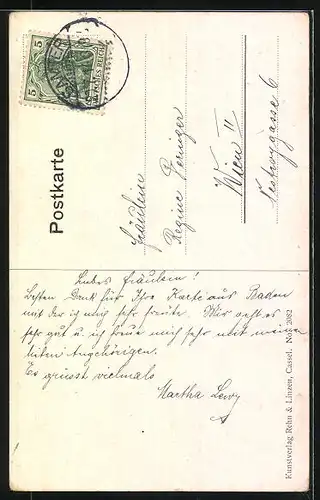 Postkarte
5 5
DEUTSCHES REICH
Fräulein
Regine Geringer
Wien II
Nestroygasse 6
Liebes Fräulein!
Besten Dank für Ihre Karte aus Baden
mit der ich mich sehr freute. Mir geht es
sehr gut u. ich freue mich sehr mit meinen
lieben Angehörigen.
Es grüsst vielmals
Martha Lewy
Kunstverlag Rehn & Linzen, Cassel. No. 2082